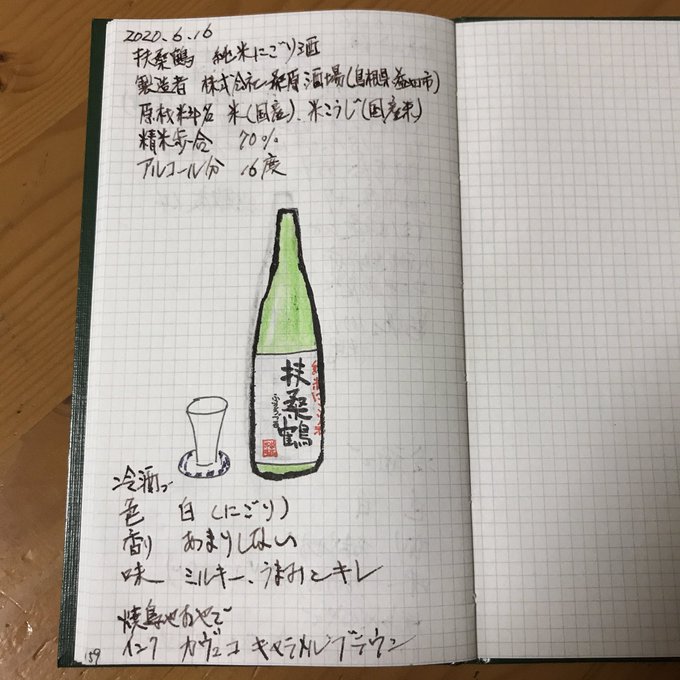 2020.6.16
扶桑鶴 純米にごり酒
製造者 株式会社桑原酒場(島根県益田市)
原材料名 米(国産)、米こうじ(国産米)
精米歩合 70%
アルコール分 16度
純米にごり酒
扶桑鶴
ふそうづる
冷酒で
色 白(にごり)
香り あまりしない
味 ミルキー、うまみとキレ
焼鳥やおやで
インク カヴェコ キャラメルブラウン
159